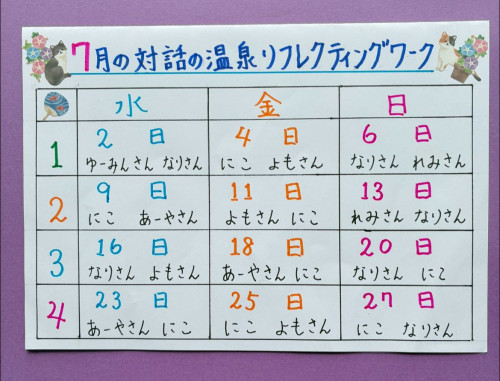 7月の対話の温泉リフレクティングワーク
水 金 日
1 2日 4日 6日
ゆーみんさん なりさん にこ よもさん なりさん れみさん
2 9日 11日 13日
にこ あーやさん よもさん にこ れみさん なりさん
3 16日 18日 20日
なりさん よもさん あーやさん にこ なりさん にこ
4 23日 25日 27日
あーやさん にこ にこ よもさん にこ なりさん